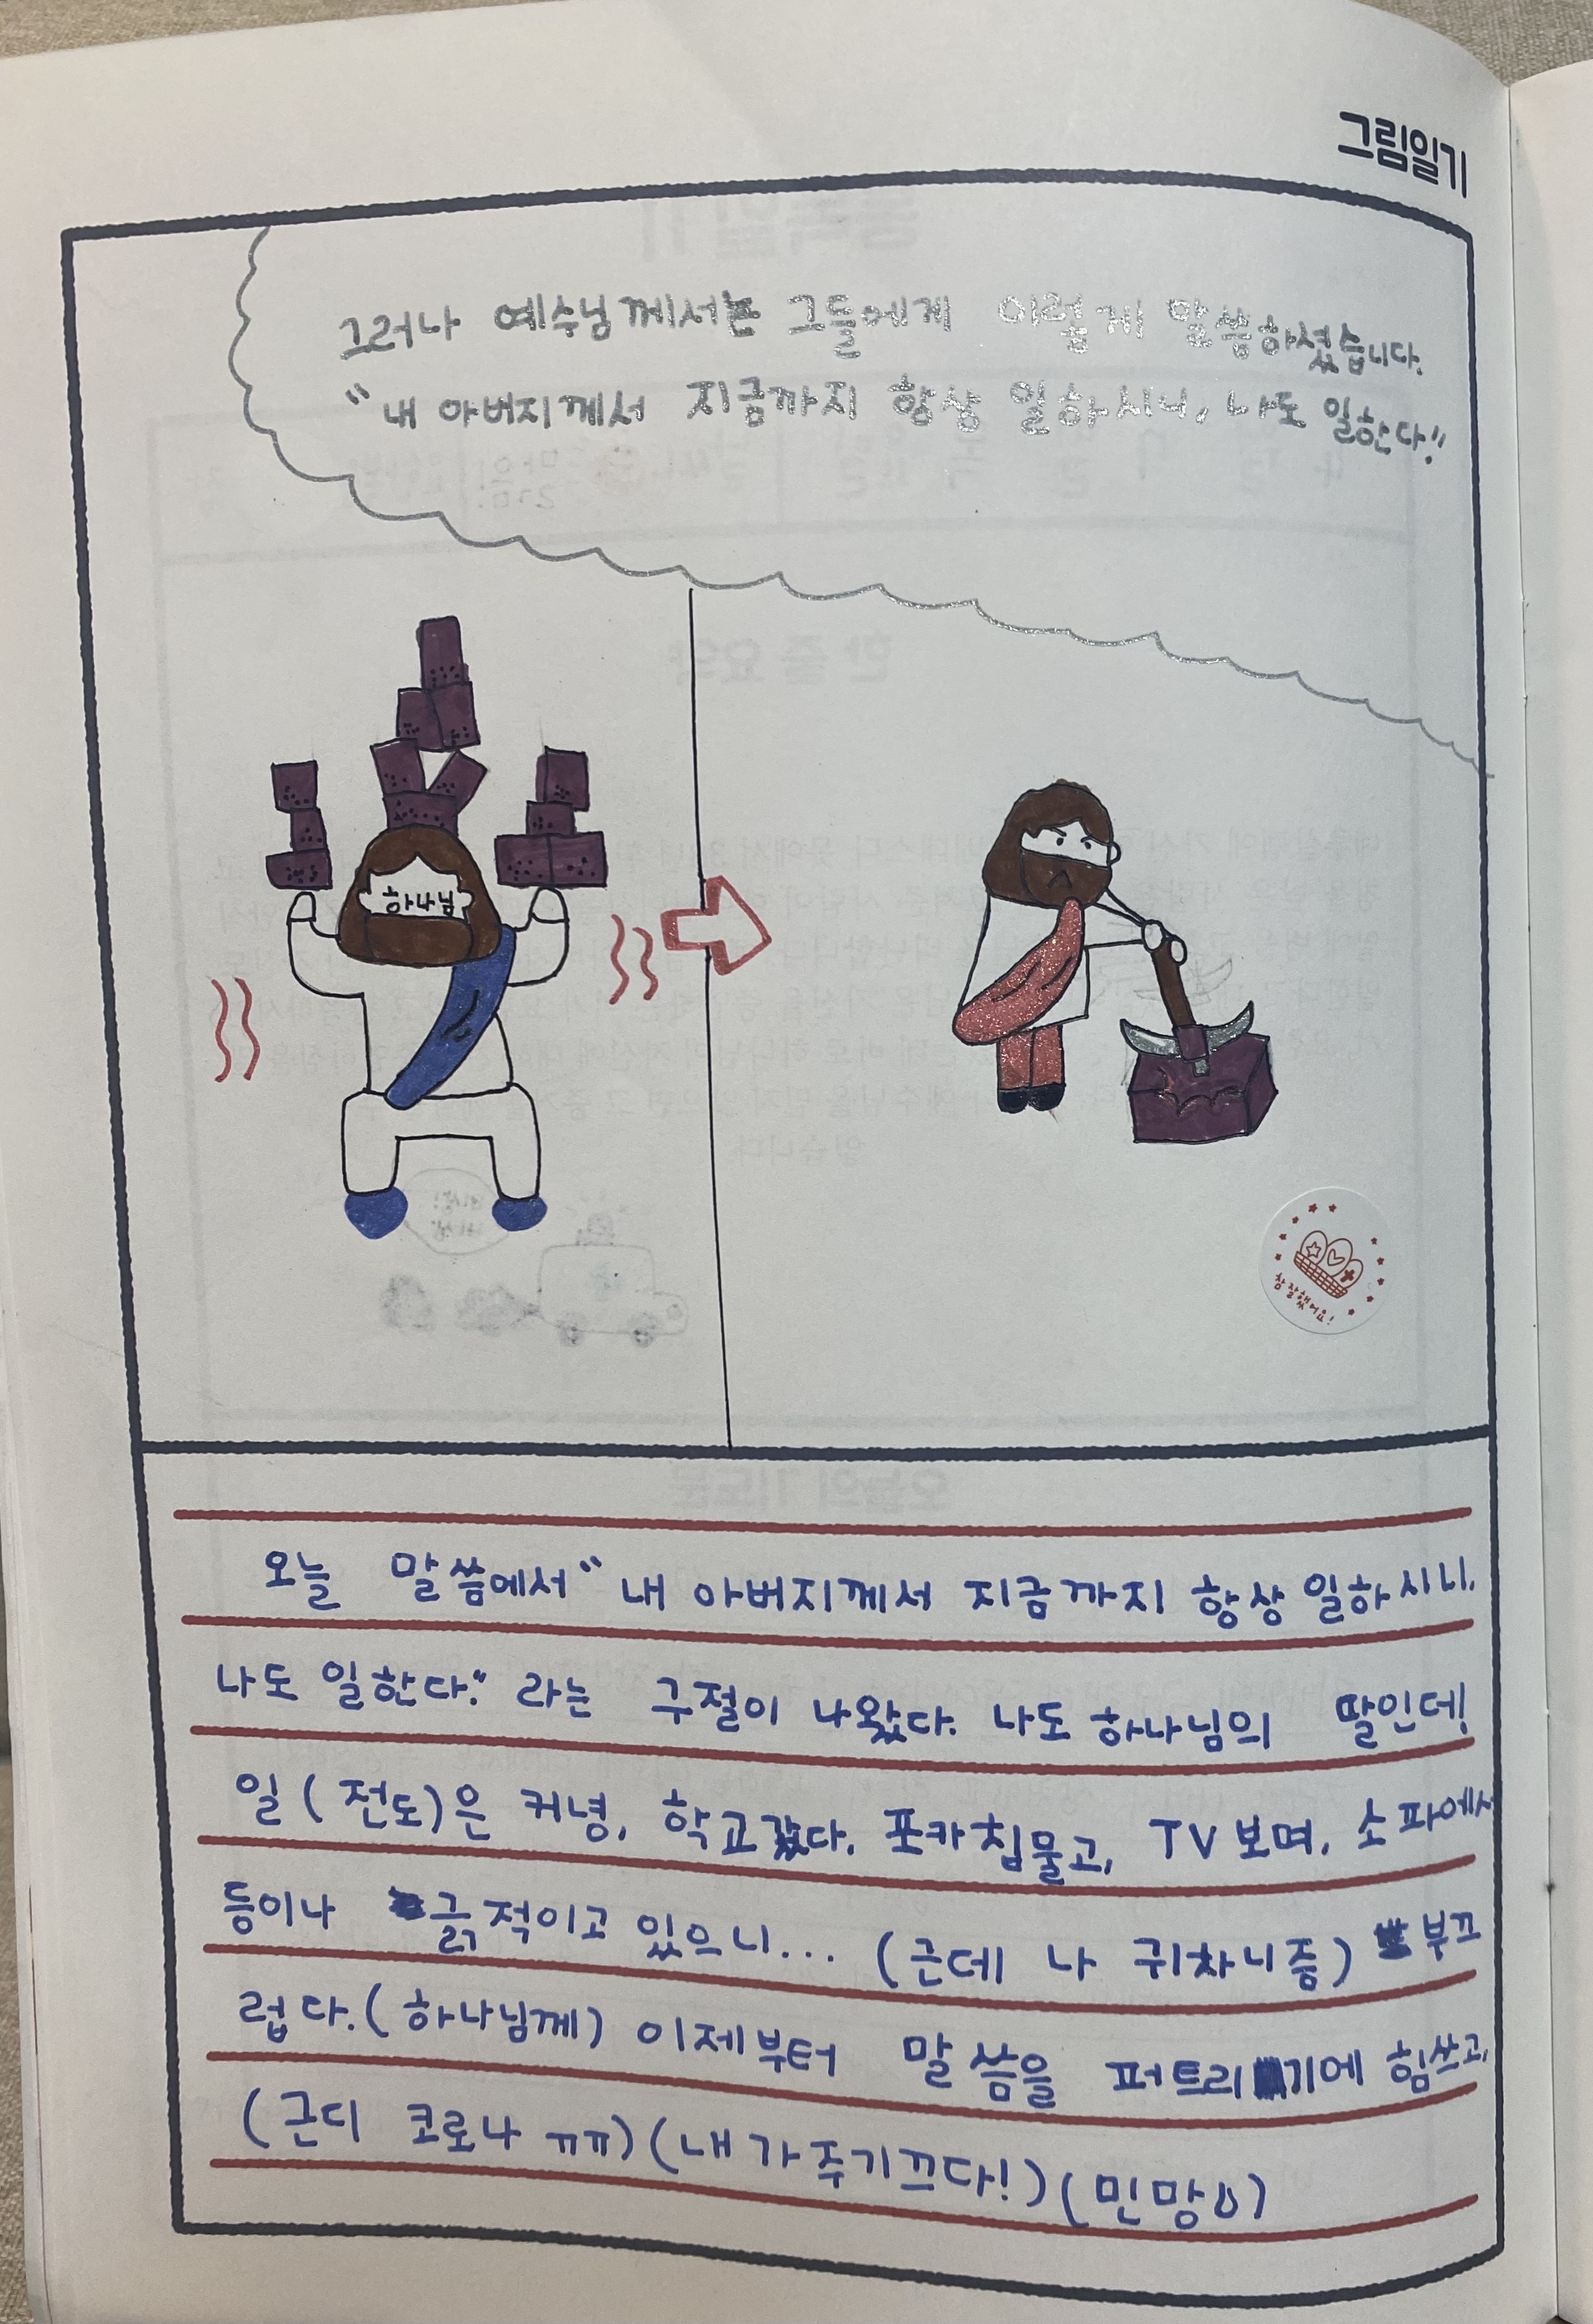 그림일기
그러나 예수님께서는 그들에게 이렇게 말씀하셨습니다.
"내 아버지께서 지금까지 항상 일하시니, 나도 일한다."
하나님
참 잘했어요!
오늘 말씀에서 "내 아버지께서 지금까지 항상 일하시니,
나도 일한다." 라는 구절이 나왔다. 나도 하나님의 딸인데!
일(전도)은 커녕, 학교갔다. 포카칩물고, TV보며, 소파에서
등이나 긁적이고 있으니... (근데 나 귀차니즘) 부끄
럽다.(하나님께) 이제부터 말씀을 퍼트리기에 힘쓰고,
(근디 코로나 ㅠㅠ)(내가 주기끄다!)(민망